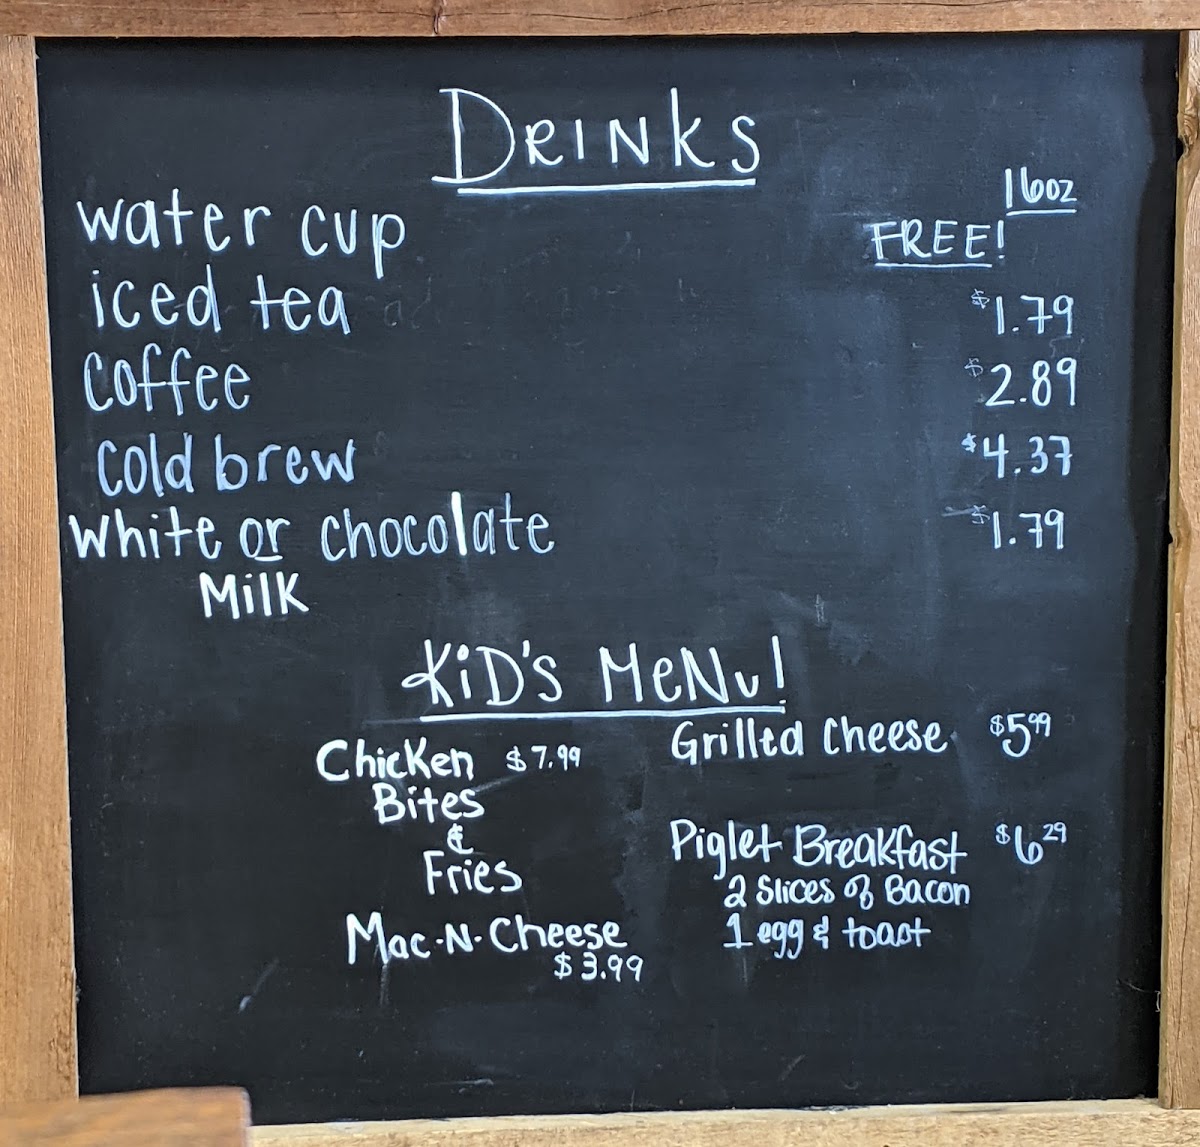 Drinks
16oz
water cup FREE!
iced tea $1.79
coffee $2.89
cold brew $4.37
white or chocolate $1.79
Milk
KiD'S MeNu!
Chicken $7.99
Bites
&
Fries
Mac-N-Cheese
$3.99
Grilled Cheese $5.99
Piglet Breakfast $6.29
2 Slices of Bacon
1 egg & toast